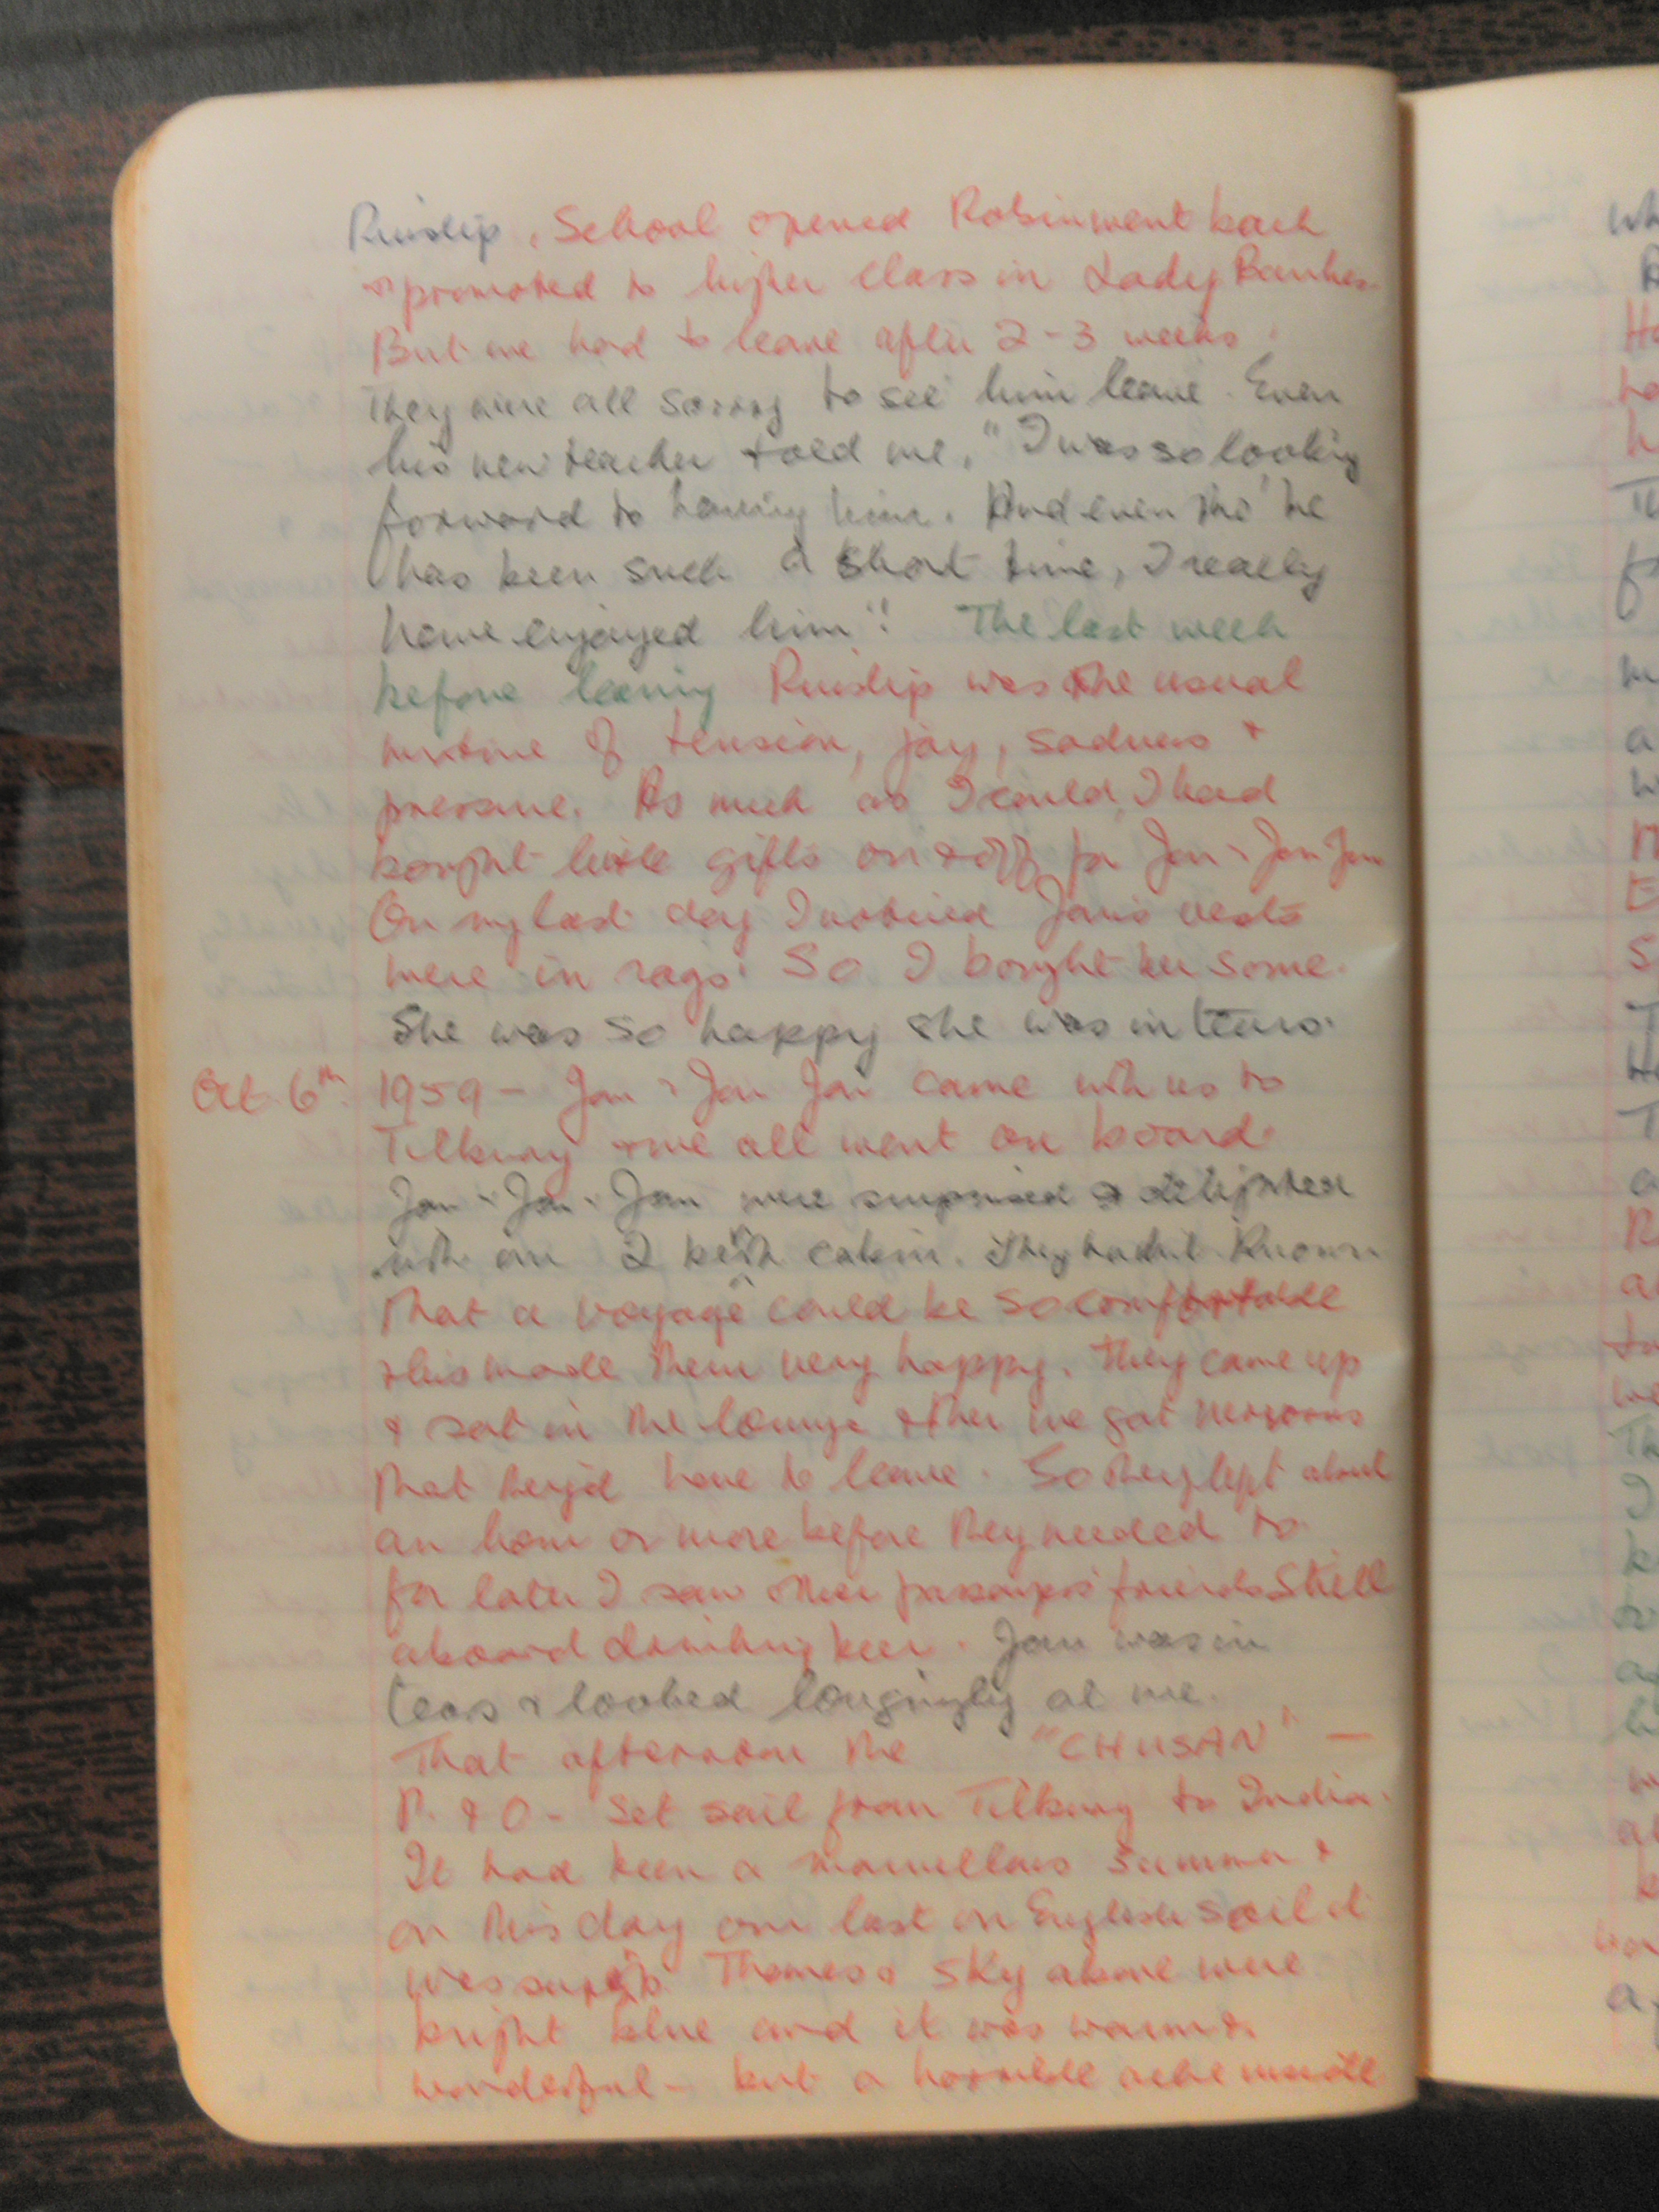 Ruislip. School opened Robin went back
& promoted to higher class in Lady Bankes.
But we had to leave after 2-3 weeks.
They were all sorry to see him leave. Even
his new teacher told me, "I was so looking
forward to having him. And even tho' he
has been such a short time, I really
have enjoyed him". The last week
before leaving Ruislip was the usual
mixture of tension, joy, sadness &
pressure. As much as I could, I had
bought little gifts on & off for Jan & Jan Jan
On my last day I noticed Jan's vests
were in rags. So I bought her some.
She was so happy she was in tears.
Oct. 6th. 1959 - Jan & Jan Jan came with us to
Tilbury & we all went on board.
Jan & Jan Jan were surprised & delighted
with our 2 berth cabin. They hadn't known
that a voyage could be so comfortable
& this made them very happy. They came up
& sat in the lounge & then we got nervous
that they'd have to leave. So they left about
an hour or more before they needed to.
for later I saw other passengers' friends still
aboard drinking beer. Jan was in
tears & looked longingly at me.
That afternoon the "CHUSAN" -
P. & O - Set sail from Tilbury to India.
It had been a marvellous summer &
on this day our last on English soil it
was superb. Thames & sky above were
bright blue and it was warm &
wonderful - but a horrible ache inside